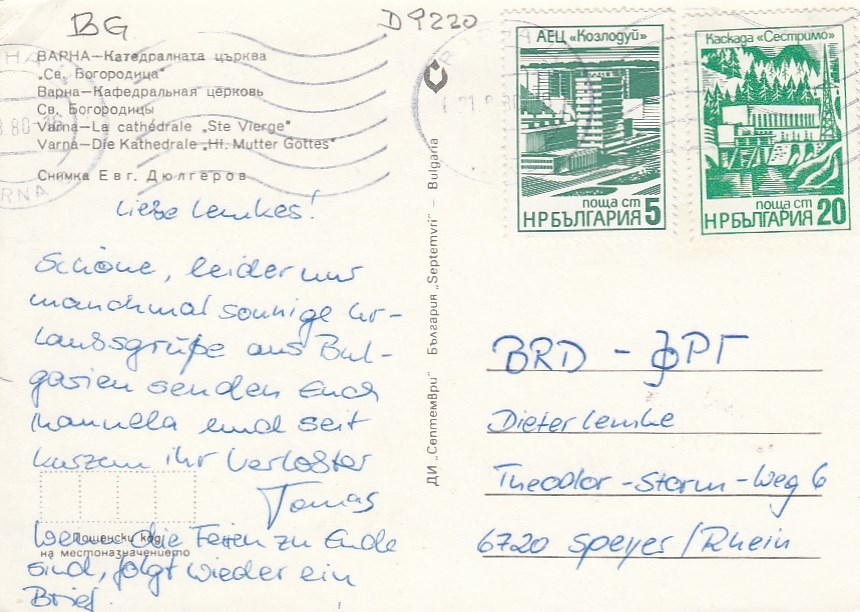 BG
D 9220
ВАРНА—Катедралната църква
„Св. Богородица"
Варна—Кафедральная церковь
Св. Богородицы
Varna—La cathédrale „Ste Vierge"
Varna—Die Kathedrale „Hl. Mutter Gottes"
Снимка Евг. Дюлгеров
Liebe Lemkes!
Schöne, leider nur
manchmal sonnige Ur-
laubsgrüße aus Bul-
garien senden Euch
Manuela und seit
kurzem ihr Verlobter
Tomas
Wenn die Ferien zu Ende
sind, folgt wieder ein
Brief.
Пощенски код
на местоназначението
ДИ „Септември" България „Septemvri" — Bulgaria
АЕЦ «Козлодуй»
поща ст
НР БЪЛГАРИЯ 5
Каскада «Сестримо»
поща ст
НР БЪЛГАРИЯ 20
BRD - ФРГ
Dieter Lemke
Theodor-Storm-Weg 6
6720 Speyer/Rhein